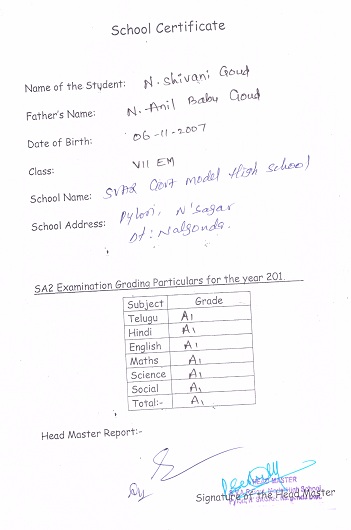 School Certificate
Name of the Student: N. Shivani Goud
Father's Name: N. Anil Babu Goud
Date of Birth: 06-11-2007
Class: VII EM
School Name: Govt Model High School
School Address: Pylon, N'Sagar
Dt: Nalgonda.
SA2 Examination Grading Particulars for the year 201.
Subject Grade
Telugu A1
Hindi A1
English A1
Maths A1
Science A1
Social A1
Total:- A1
Head Master Report:-
HEAD MASTER
High School
Signature of the Head Master